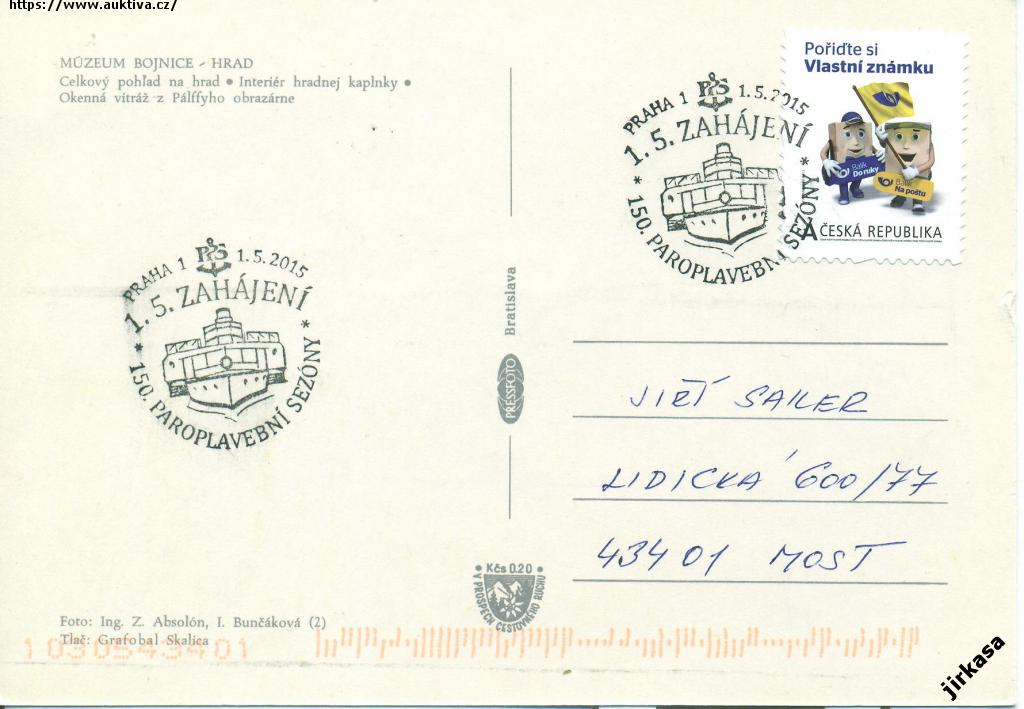 https://www.auktiva.cz/
MÚZEUM BOJNICE - HRAD
Celkový pohľad na hrad • Interiér hradnej kaplnky •
Okenná vitráž z Pálffyho obrazárne
PRAHA 1 PPS 1.5.2015
1. 5. ZAHÁJENÍ
* 150. PAROPLAVEBNÍ SEZÓNY *
Pořiďte si
Vlastní známku
Balík
Do ruky
Balík
Na poštu
A ČESKÁ REPUBLIKA
PRAHA 1 PPS 1.5.2015
1. 5. ZAHÁJENÍ
* 150. PAROPLAVEBNÍ SEZÓNY *
PRESSFOTO Bratislava
JIŘÍ SAILER
LIDICKÁ 600/77
43401 MOST
• Kčs 0.20 •
V PROSPECH CESTOVNÉHO RUCHU
Foto: Ing. Z. Absolón, I. Bunčáková (2)
Tlač: Grafobal Skalica
1030543401
jirkasa